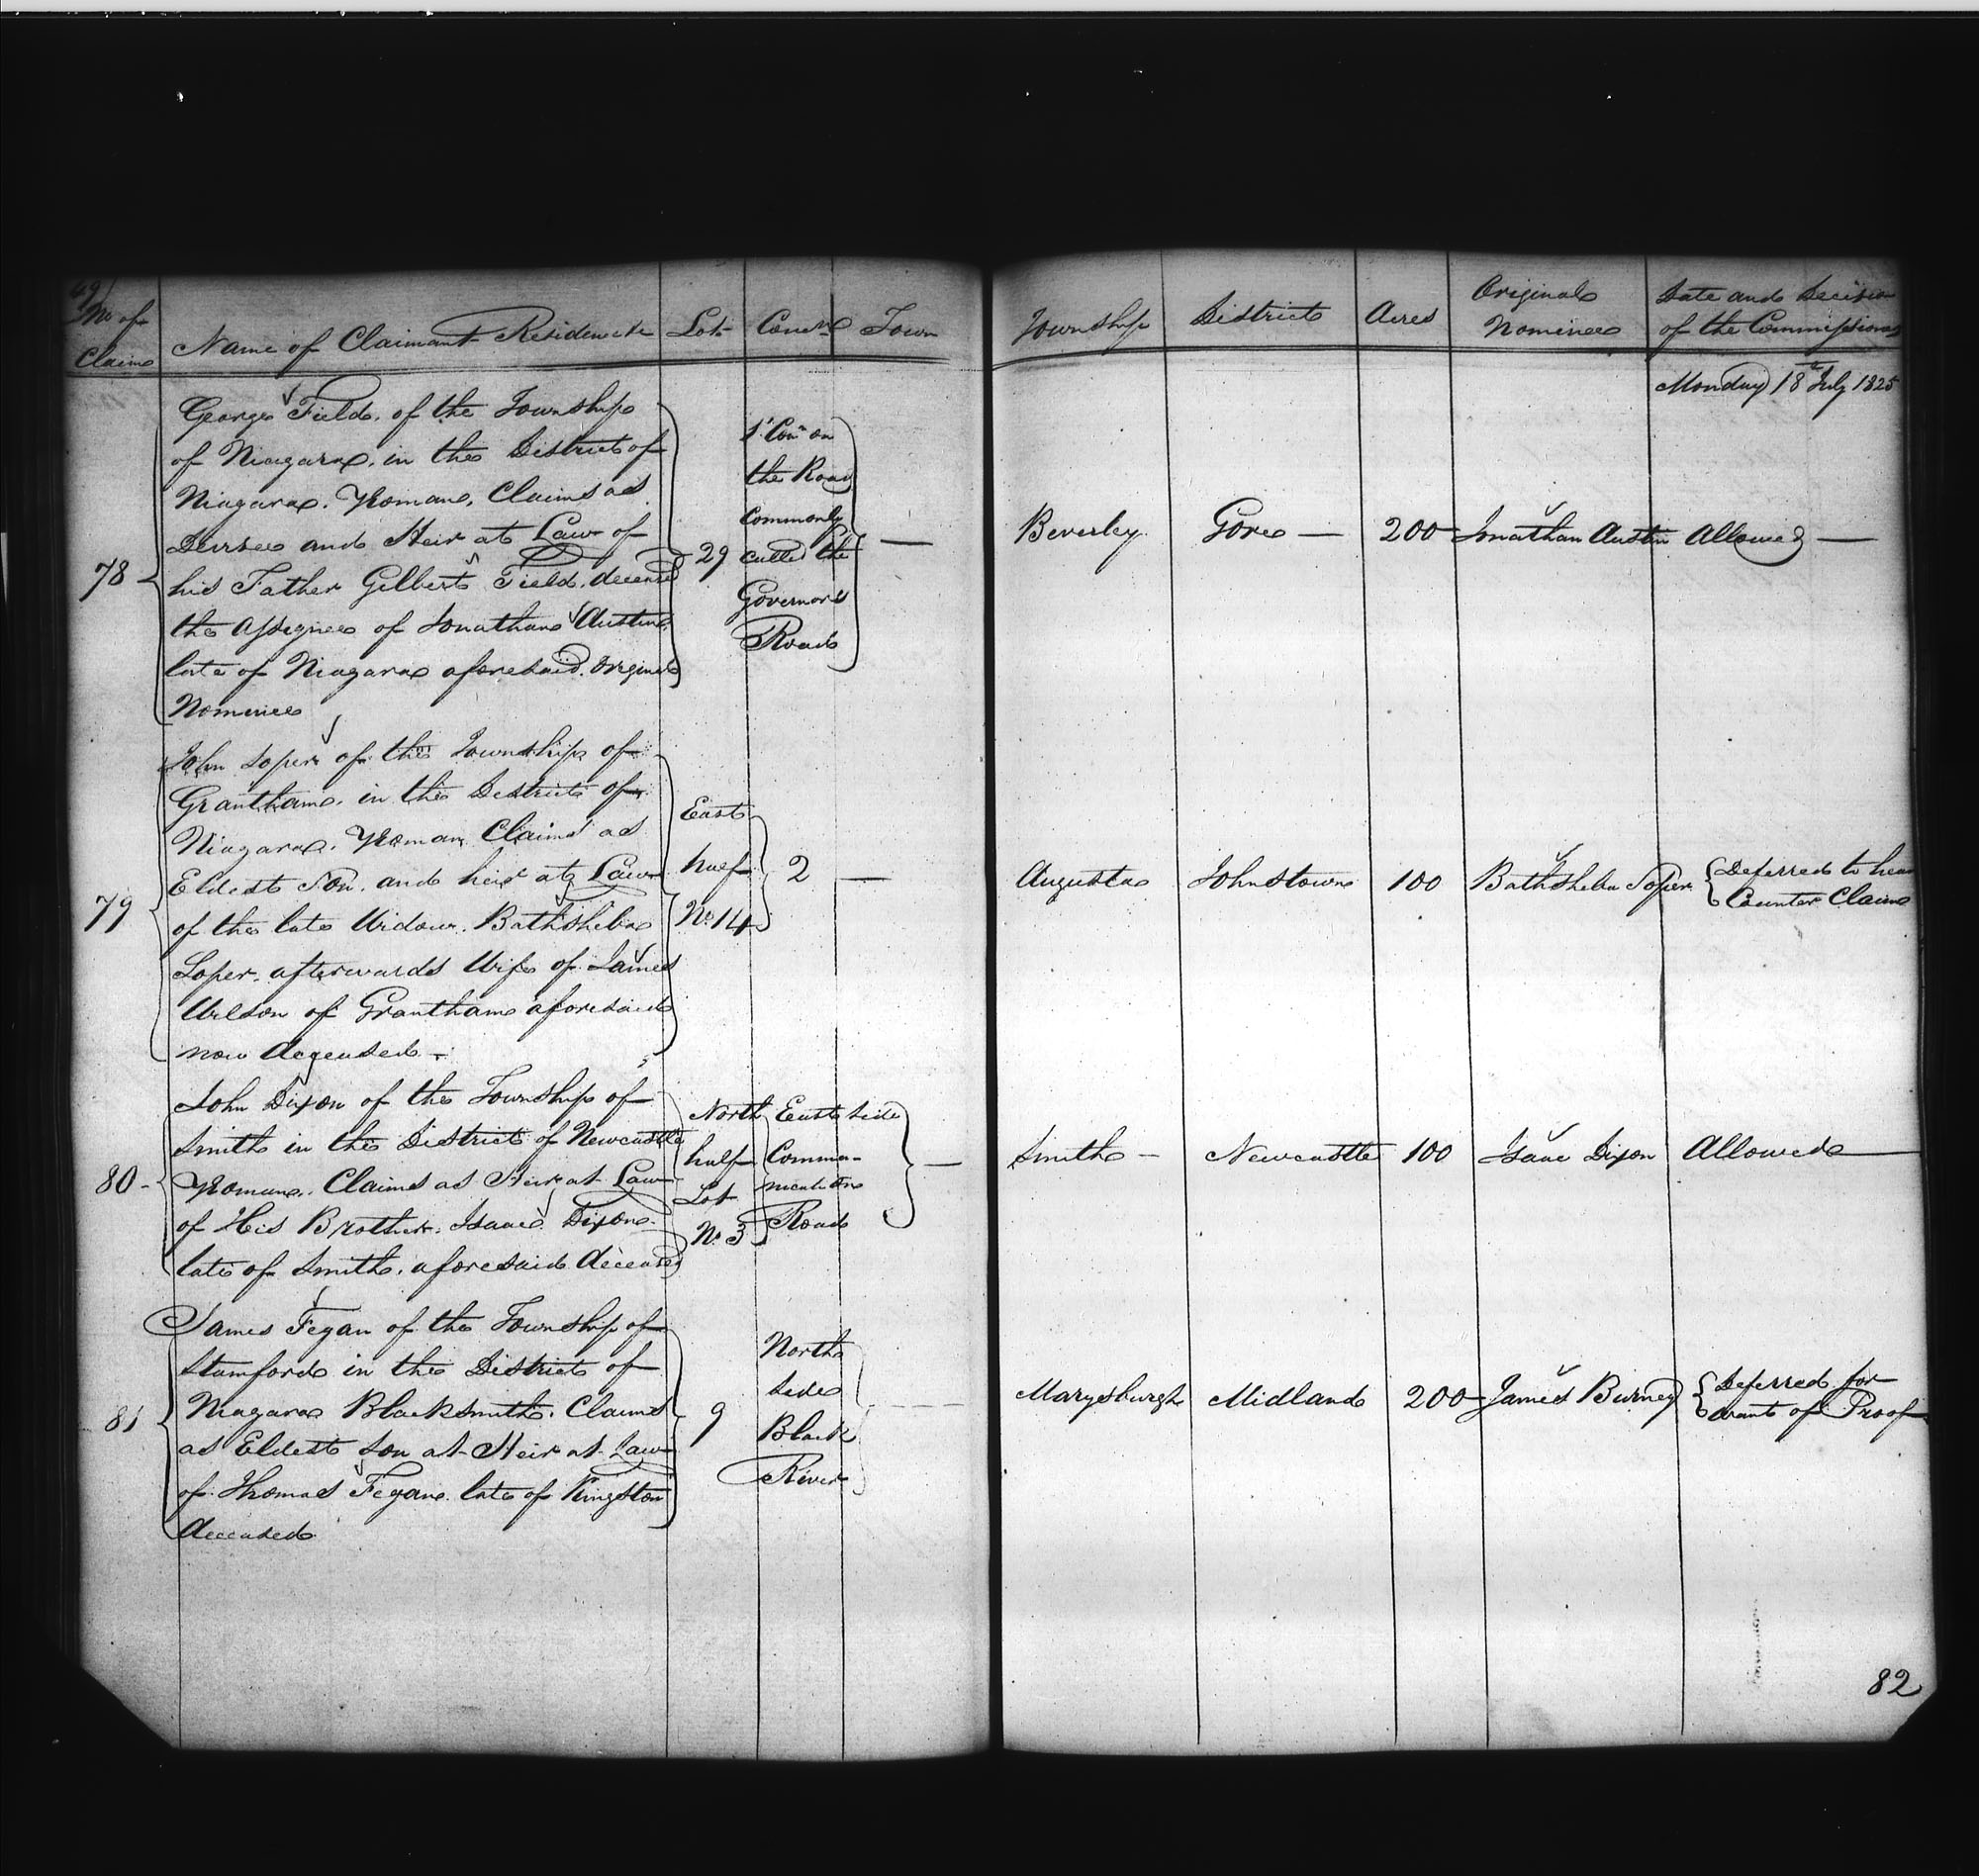 69
No of
Claim
Name of Claimant Residence &c
Lot
Conc.n
Town
Township
District
Acres
Original
Nominee
Date and Decision
of the Commissioners
Monday 18th July 1825
78
George Field, of the Township
of Niagara, in the District of
Niagara, Yeoman, Claims as
Devisee and Heir at Law of
his Father Gilbert Field, deceased
the Assignee of Jonathan Austin,
late of Niagara aforesaid, Original
Nominee
29
1st Con.n on
the Road
Commonly
called the
Governors
Road
—
Beverley
Gore —
200
Jonathan Austin
Allowed —
79
John Soper of the Township of
Grantham, in the District of
Niagara, Yeoman, Claims as
Eldest Son, and heir at Law
of the late Widow, Bathsheba
Soper, afterwards Wife of James
Wilson of Grantham aforesaid
now deceased —
East
half
No. 14
2
—
Augusta
Johnstown
100
Bathsheba Soper
Deferred to hear
Counter Claim
80
John Dixon of the Township of
Smith in the District of Newcastle
Yeoman, Claims as Heir at Law
of His Brother, Isaac Dixon
late of Smith, aforesaid deceased
North
half
Lot
No. 3
East side
Commu-
nication
Road
—
Smith —
Newcastle
100
Isaac Dixon
Allowed
81
James Fegan of the Township of
Stamford in the District of
Niagara Blacksmith, Claims
as Eldest Son at Heir at Law
of Thomas Fegan late of Kingston
deceased
9
North
side
Black
River
Marysburgh
Midland
200
James Burney
Deferred for
want of Proof
82